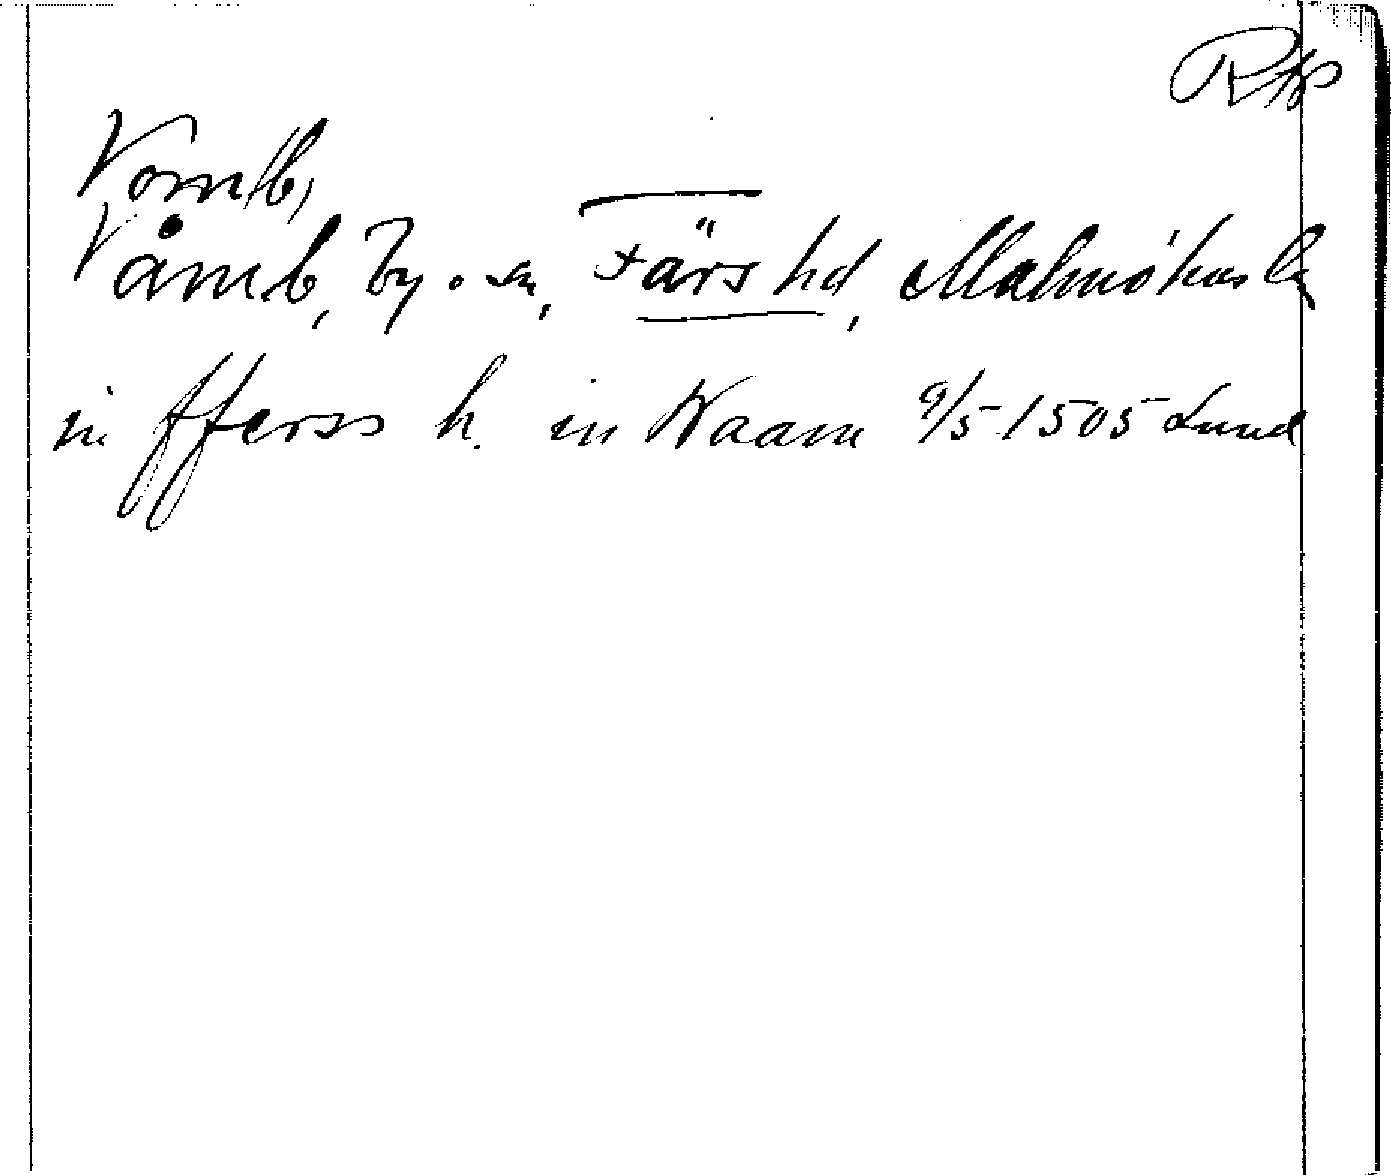 Rtp
Vomb,
Våmb, by o. sn, Färs hd, Malmöhus ln
in fferss h. in Waam 9/5 1505 Lund